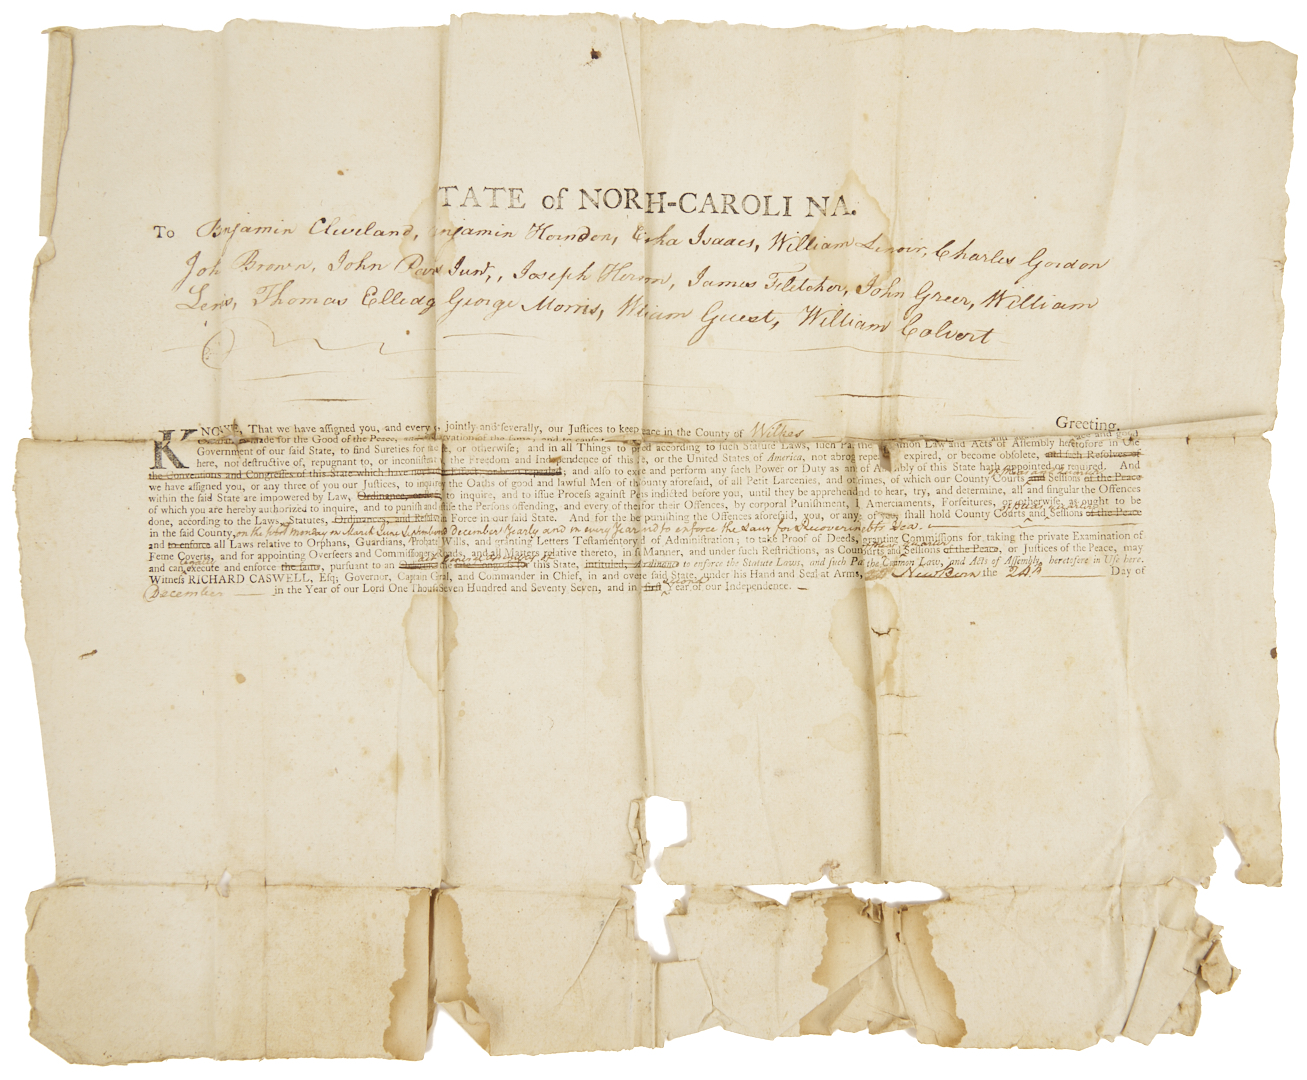 TATE of NORH-CAROLI NA.
To Benjamin Cleveland, enjamin Herndon, E sha Isaacs, William Lenoir, Charles Gordon
Joh Brown, John Par s Junr, Joseph Hernn, James Fletcher, John Greer, William
Lewis, Thomas Elledg George Morris, W iam Guest, William Colvert
Greeting.
KNOWE, That we have assigned you, and every jointly and severally, our Justices to keep eace in the County of Wilkes
made for the Good of the Peace, and
Government of our said State, to find Sureties for , or otherwise; and in all Things to pro according to such Statute Laws, such Pa the mon Law and Acts of Assembly heretofore in Use
here, not destructive of, repugnant to, or inconsistent the Freedom and Independence of this , or the United States of America, not abrog repe expired, or become obsolete, and such Resolves of
the Conventions and Congresses of this State which have not ; and also to exe and perform any such Power or Duty as an of A bly of this State hath appointed or required. And
we have assigned you, or any three of you our Justices, to inquire the Oaths of good and lawful Men of th ounty aforesaid, of all Petit Larcenies, and o rimes, of which our County Courts and Sessions of the Peace
within the said State are impowered by Law, Ordinance, to inquire, and to issue Process against P s indicted before you, until they be apprehend to hear, try, and determine, all and singular the Offences
of which you are hereby authorized to inquire, and to punish and the Persons offending, and every of the for their Offences, by corporal Punishment, Amerciaments, Forfeitures, or otherwise, as ought to be
done, according to the Laws, Statutes, Ordinances, and Resolu Force in our said State. And for the be punishing the Offences aforesaid, you, or any of you, shall hold County Courts and Sessions of the Peace
in the said County, on the first monday in March June September December Yearly and in every Year and to enforce the Laws for Recovering
and to enforce all Laws relative to Orphans, Guardians, Probate Wills, and granting Letters Testamentory d of Administration; to take Proof of Deeds, granting Commissions for taking the private Examination of
Feme Coverts, and for appointing Overseers and Commissioners ads, and all Matters relative thereto, in Manner, and under such Restrictions, as Coun ourts and Sessions of the Peace, or Justices of the Peace, may
and can legally execute and enforce the same, pursuant to an this State, intituled, rdinance to enforce the Statute Laws, and such Pa the Common Law, and Acts of Assembly, heretofore in Use here.
Witness RICHARD CASWELL, Esq; Governor, Captain G ral, and Commander in Chief, in and over e said State, under his Hand and Seal at Arms, New Bern the 24th Day of
December in the Year of our Lord One Thous Seven Hundred and Seventy Seven, and in first Second Year of our Independence.